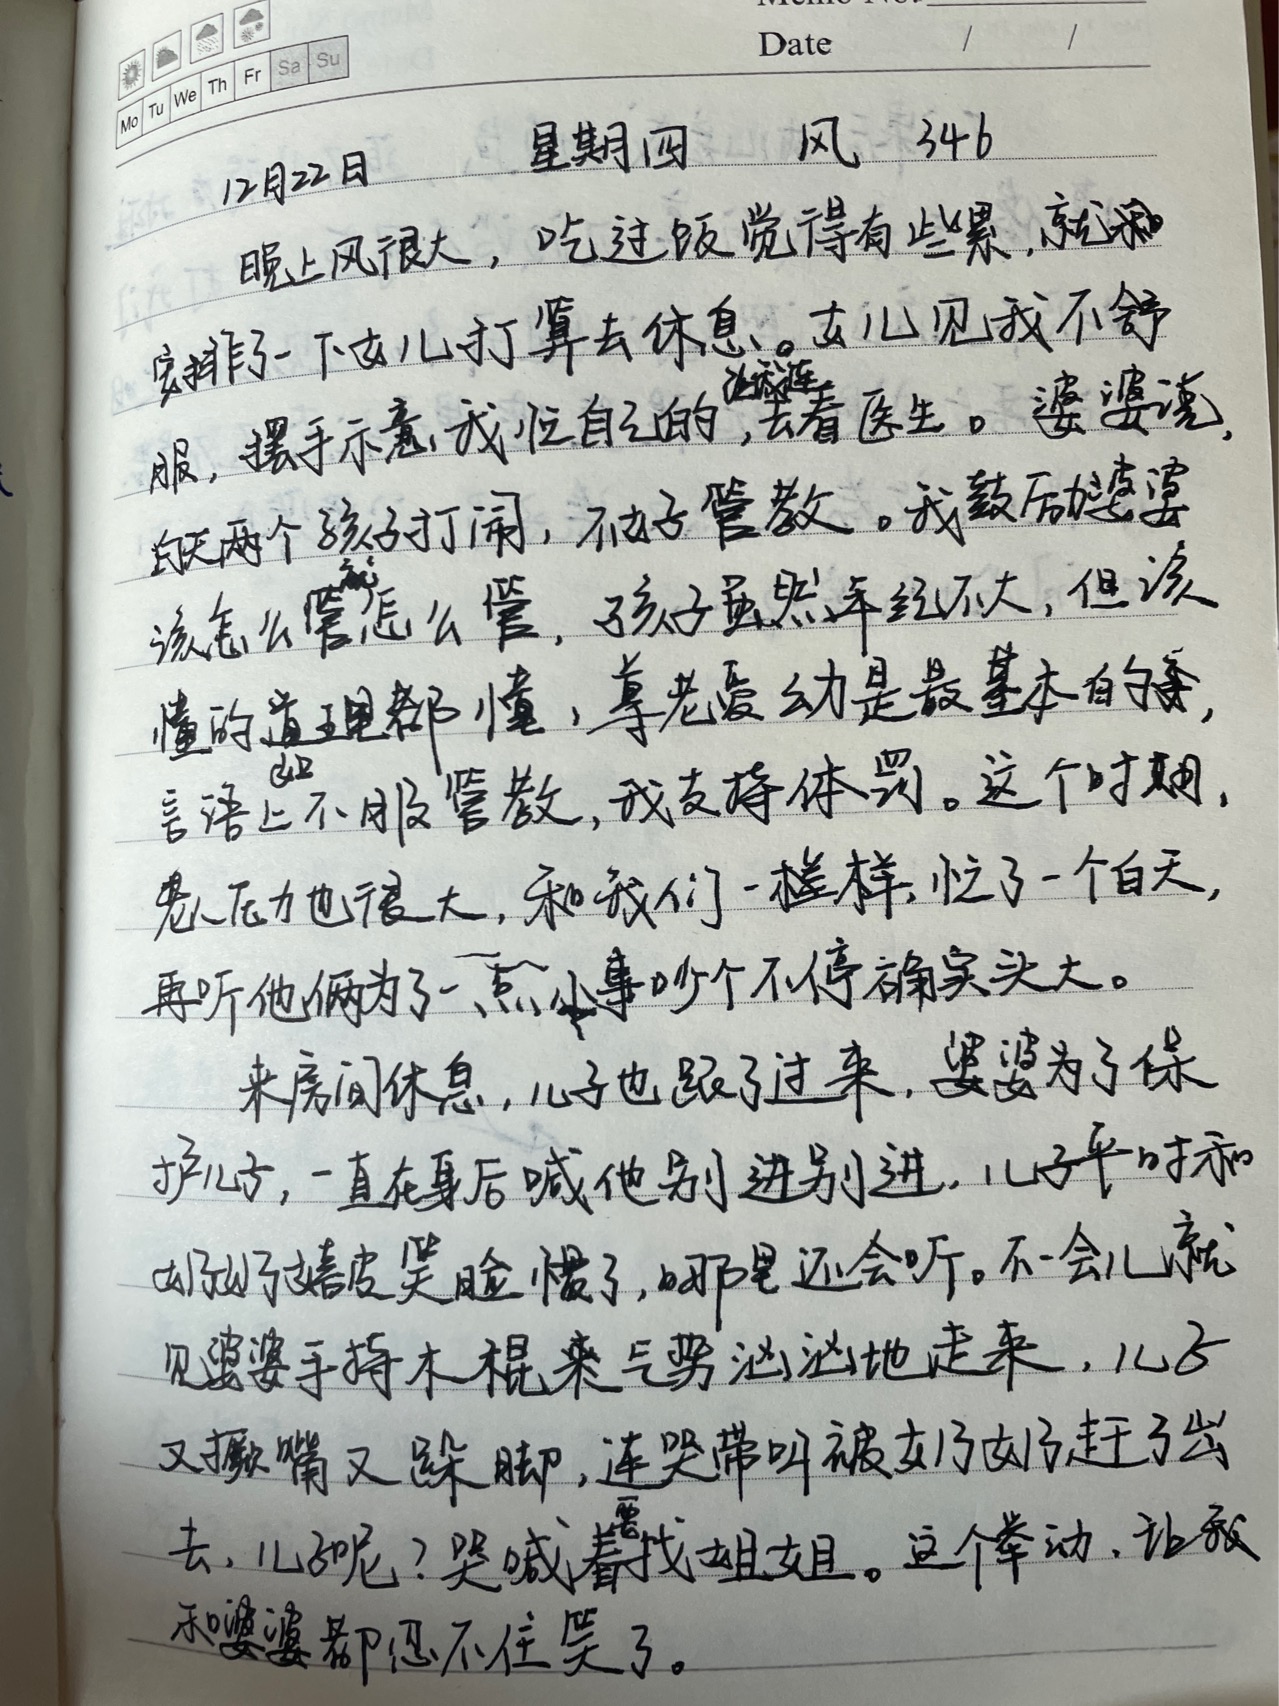 Memo No.
Date / /
Mo Tu We Th Fr Sa Su
12月22日 星期四 风 346
晚上风很大，吃过饭觉得有些累，就
安排了一下女儿打算去休息。女儿见我不舒
服，摆手示意我忙自己的，让我连去看医生。婆婆说，
白天两个孩子打闹，不好管教。我鼓励婆婆
该怎么管就怎么管，孩子虽然年纪不大，但该
懂的道理都懂，尊老爱幼是最基本的，
言语上不服管教，我支持体罚。这个时期，
老人压力也很大，和我们一样，忙了一个白天，
再听他俩为了一点小事吵个不停确实头大。
来房间休息，儿子也跟了过来，婆婆为了保
护儿子，一直在身后喊他别进别进，儿子平时和
奶奶嬉皮笑脸惯了，哪里还会听。不一会儿就
见婆婆手持木棍来气势汹汹地走来，儿子
又撅嘴又跺脚，连哭带叫被奶奶赶了出
去，儿子呢？哭喊着要找姐姐。这个举动，让我
和婆婆都忍不住笑了。